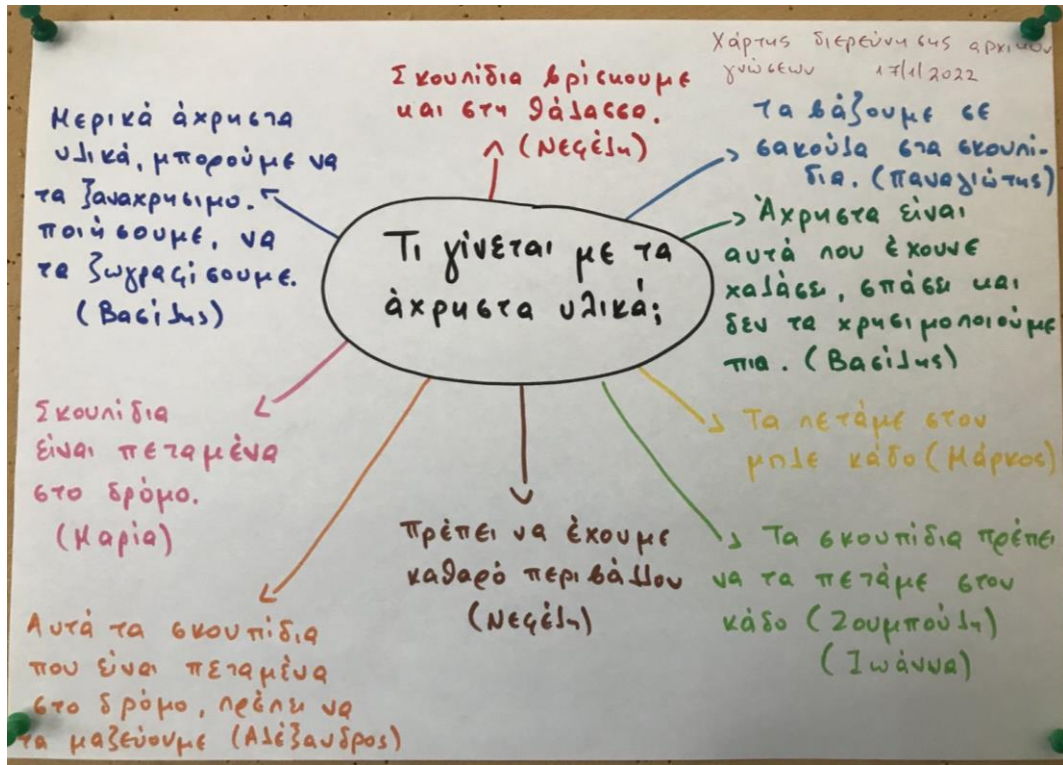 Χάρτης διερεύνησης αρχικών
γνώσεων 17/1/2022
Τι γίνεται με τα
άχρηστα υλικά;
Σκουπίδια βρίσκουμε
και στη θάλασσα.
(Νεφέλη)
Τα βάζουμε σε
σακούλα στα σκουπί-
δια. (Παναγιώτης)
Άχρηστα είναι
αυτά που έχουνε
χαλάσει, σπάσει και
δεν τα χρησιμοποιούμε
πια. (Βασίλης)
Τα πετάμε στον
μπλε κάδο (Μάρκος)
Τα σκουπίδια πρέπει
να τα πετάμε στον
κάδο (Ζουμπούλη)
(Ιωάννα)
Πρέπει να έχουμε
καθαρό περιβάλλον
(Νεφέλη)
Αυτά τα σκουπίδια
που είναι πεταμένα
στο δρόμο, πρέπει να
τα μαζεύουμε (Αλέξανδρος)
Σκουπίδια
είναι πεταμένα
στο δρόμο.
(Μαρία)
Μερικά άχρηστα
υλικά, μπορούμε να
τα ξαναχρησιμο.
ποιήσουμε, να
τα ζωγραφίσουμε.
(Βασίλης)